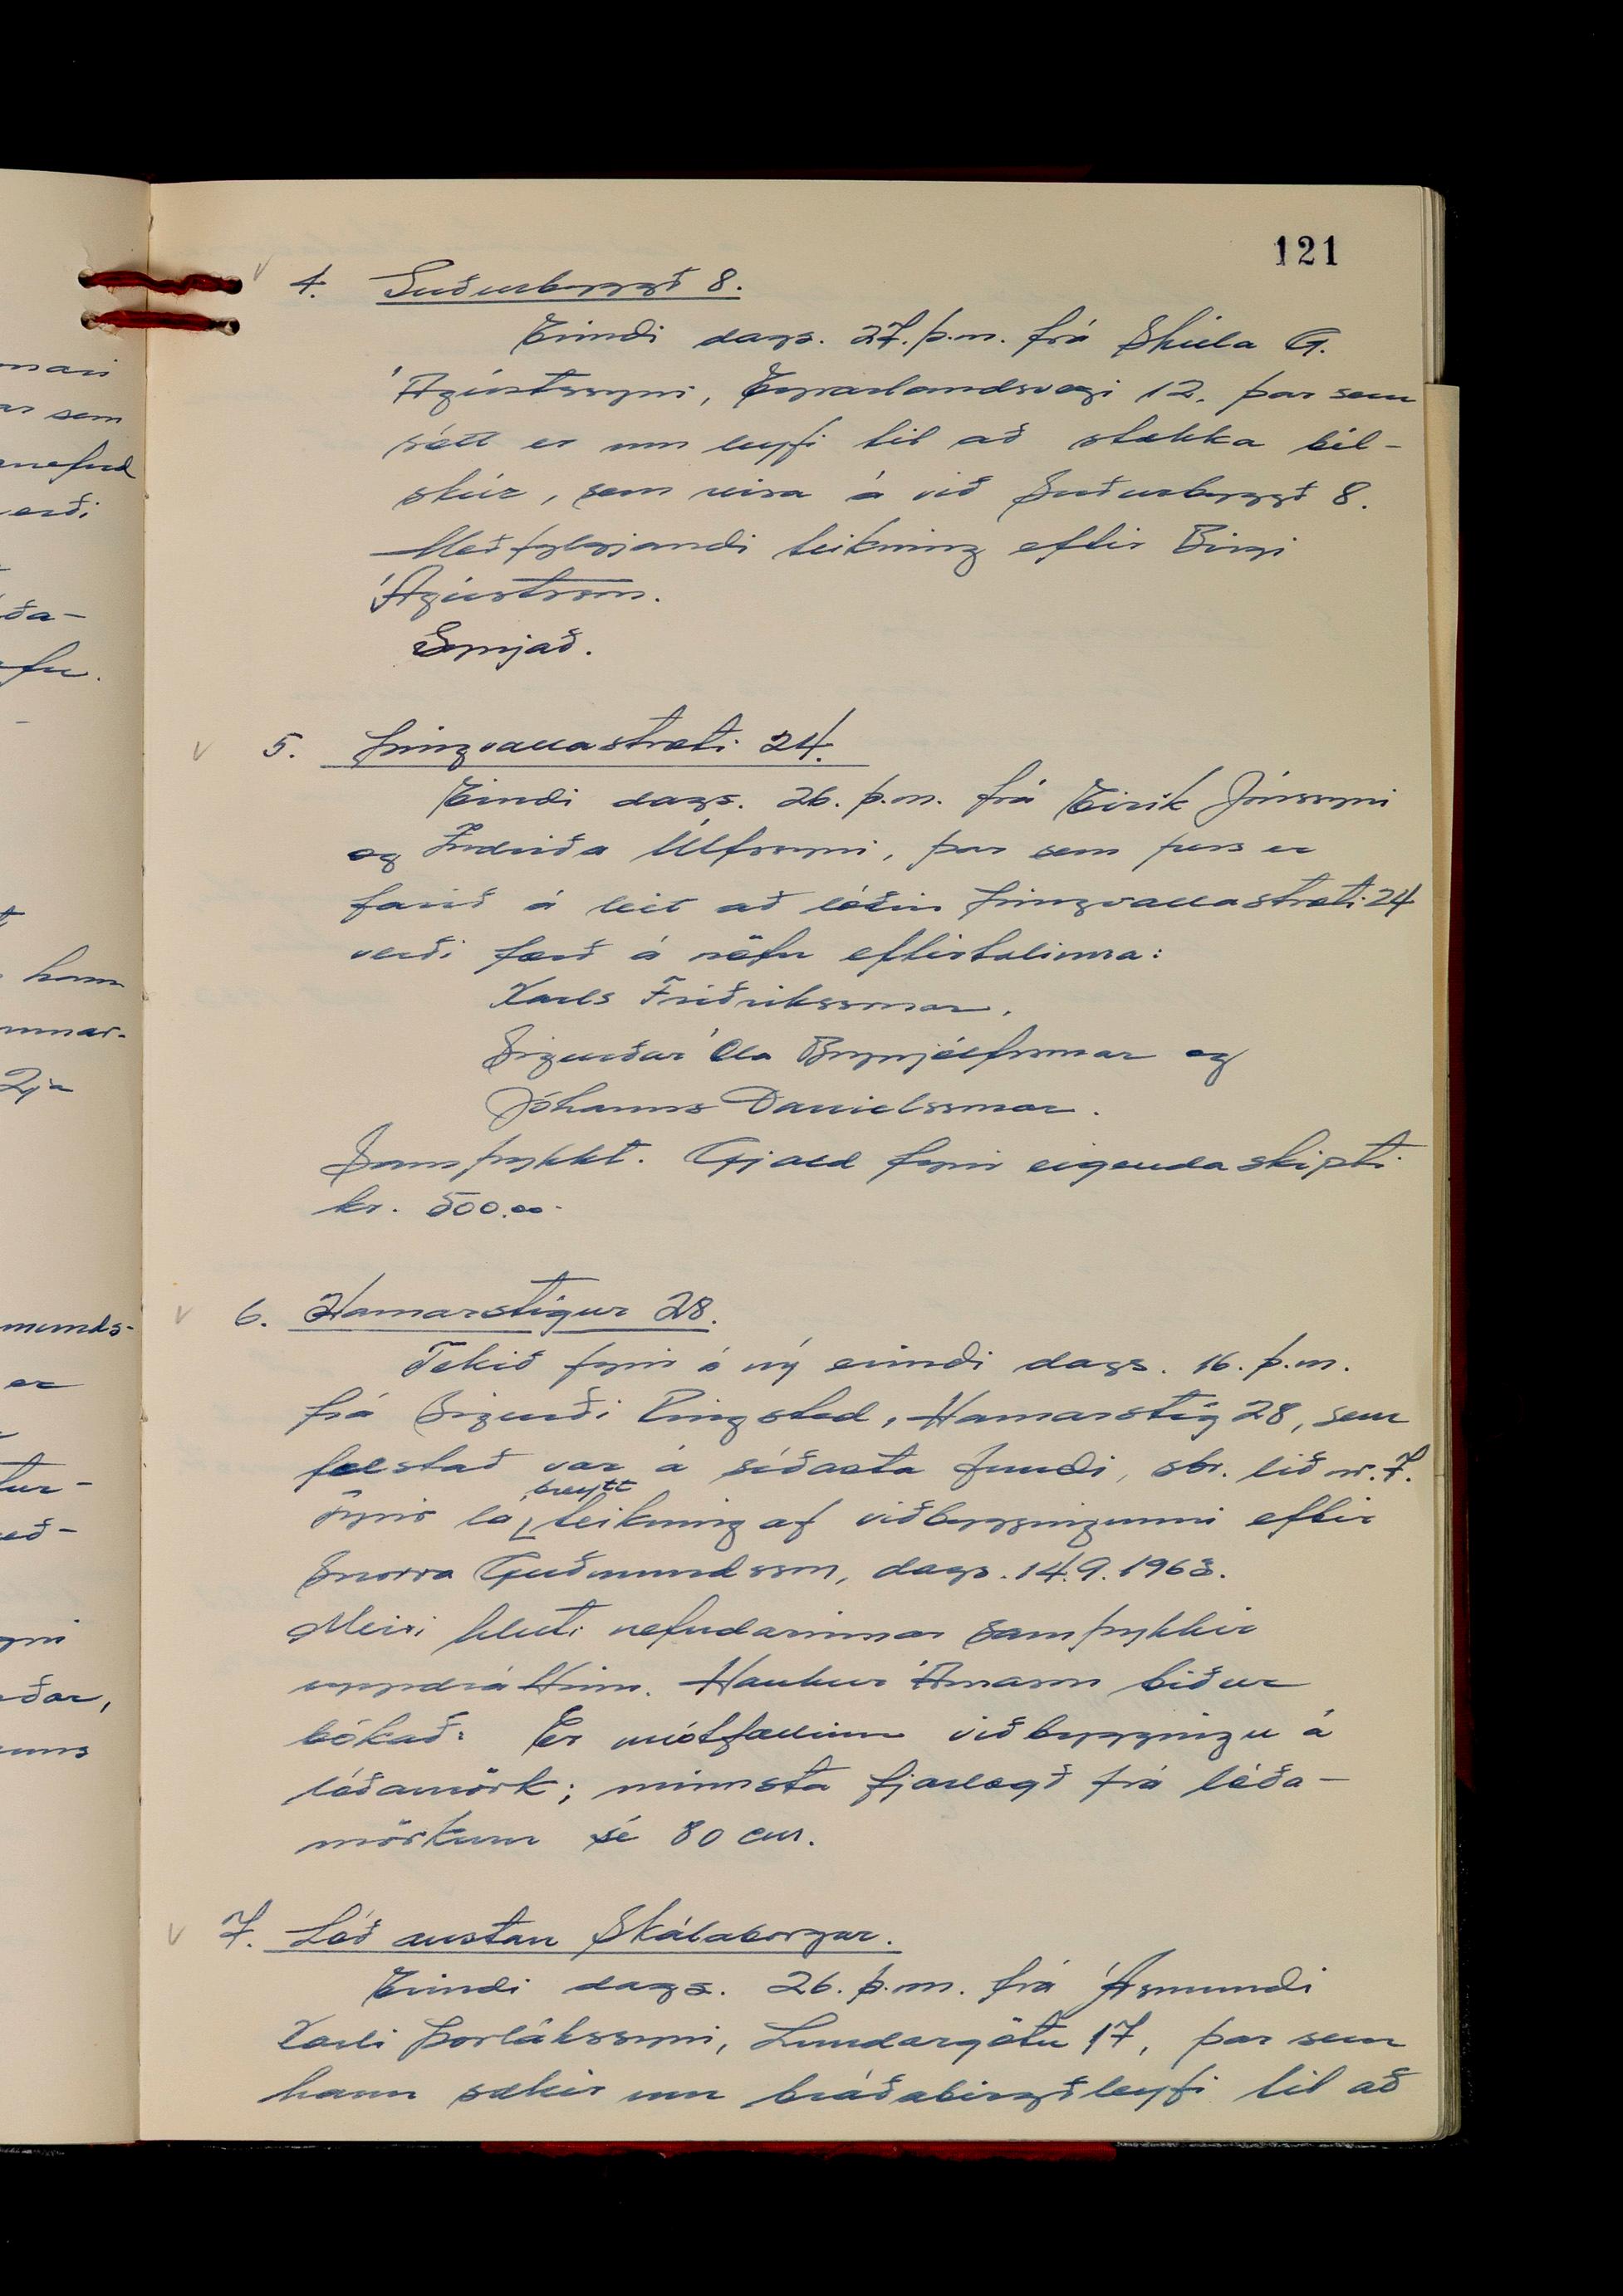 121
4. Suðurbyggð 8.
Erindi dags. 27. þ.m. frá Skúla G.
Ágústssyni, Eyrarlandsvegi 12. þar sem
sótt er um leyfi til að stækka bíl-
skúr, sem reisa á við Suðurbyggð 8.
Meðfylgjandi teikning eftir Birgi
Ágústsson.
Synjað.
5. Þingvallastræti 24.
Erindi dags. 26. þ.m. frá Eirík Jónssyni
og Indriða Úlfssyni, þar sem þess er
farið á leit að lóðin Þingvallastræti 24
verði færð á nöfn eftirtalinna:
Karls Friðrikssonar,
Sigurðar Óla Brynjólfssonar og
Jóhanns Daníelssonar.
Samþykkt. Gjald fyrir eigendaskipti
kr. 500.00
6. Hamarstígur 28.
Tekið fyrir á ný erindi dags. 16. þ.m.
frá Sigurði Ringsted, Hamarstíg 28, sem
frestað var á síðasta fundi, sbr. lið nr. 7.
breytt
Fyrir lá teikning af viðbyggingunni eftir
Snorra Guðmundsson, dags. 14.9.1963.
Meiri hluti nefndarinnar samþykkir
uppdráttinn. Haukur Árnason biður
bókað: Er mótfallinn viðbyggingu á
lóðamörk; minnsta fjarlægð frá lóða-
mörkum sé 80 cm.
7. Lóð austan Skálaborgar.
Erindi dags. 26. þ.m. frá Ásmundi
Karli Þorlákssyni, Lundargötu 17, þar sem
hann sækir um bráðabirgðleyfi til að